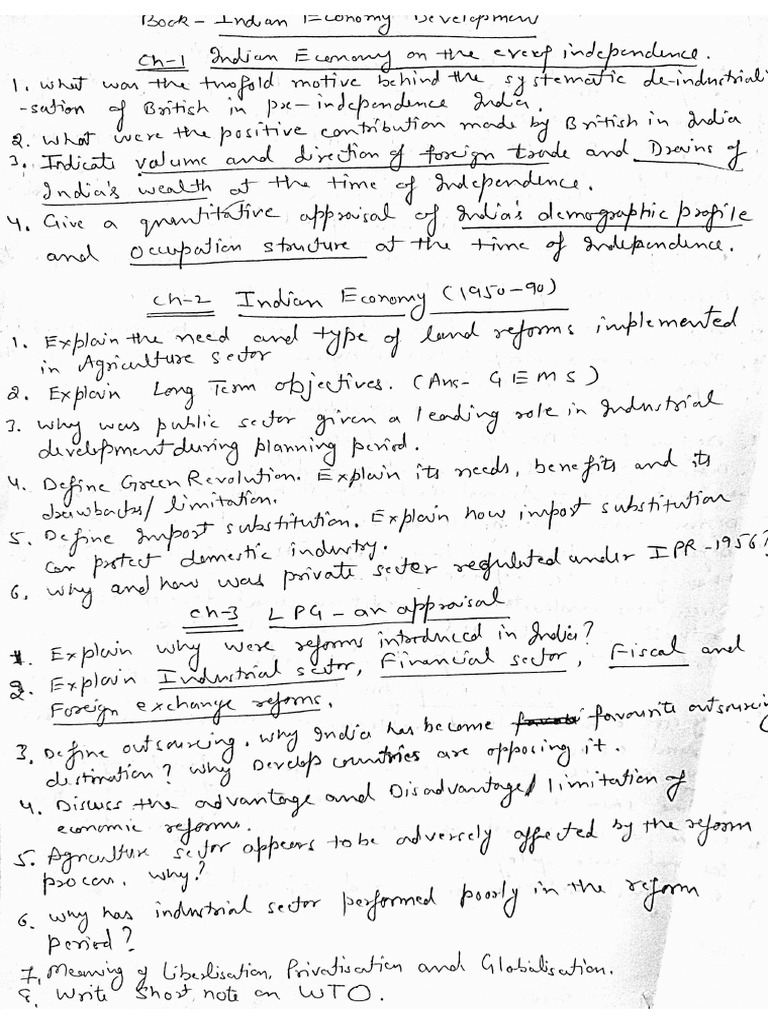 Book - Indian Economy Development
Ch-1 Indian Economy on the eve of independence.
1. What was the twofold motive behind the systematic de-industriali
-sation of British in pre-independence India.
2. What were the positive contribution made by British in India
3. Indicate volume and direction of foreign trade and Drains of
India's wealth at the time of Independence.
4. Give a quantitative appraisal of India's demographic profile
and Occupation structure at the time of Independence.
Ch-2 Indian Economy (1950-90)
1. Explain the need and type of land reforms implemented
in Agriculture sector
2. Explain Long Term objectives. (Ans- G E M S)
3. Why was public sector given a leading role in Industrial
development during planning period.
4. Define Green Revolution. Explain its needs, benefits and its
drawbacks/ limitation.
5. Define Import substitution. Explain how import substitution
can protect domestic industry.
6. Why and how was private sector regulated under IPR-1956?
Ch-3 LPG - an appraisal
1. Explain why were reforms introduced in India?
2. Explain Industrial sector, Financial sector, Fiscal and
Foreign exchange reforms.
3. Define outsourcing. Why India has become favourite outsourcing
destination? Why Develop countries are opposing it.
4. Discuss the advantage and Disadvantage/ limitation of
economic reforms.
5. Agriculture sector appears to be adversely affected by the reform
process. Why?
6. Why has industrial sector performed poorly in the reform
period?
7. Meaning of Liberlisation, Privatisation and Globalisation.
8. Write Short note on WTO.